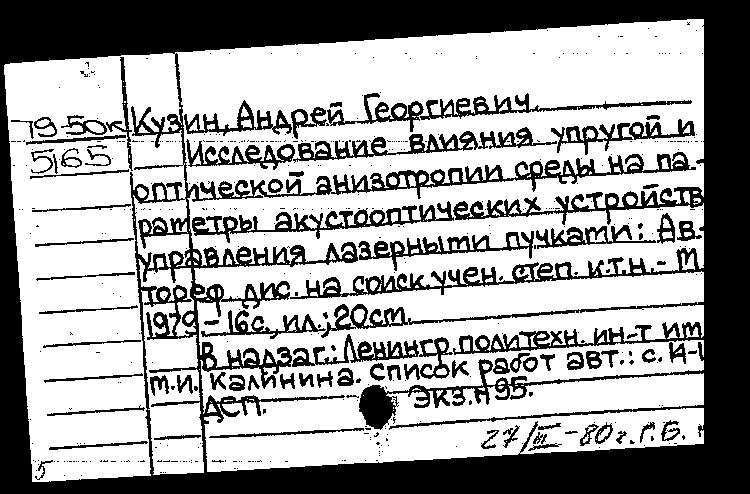 79-50к Кузин, Андрей Георгиевич.
5165 Исследование влияния упругой и
оптической анизотропии среды на па-
раметры акустооптических устройств
управления лазерными пучками: Ав-
тореф. дис. на соиск. учен. степ. к.т.н. - М.
1979 - 16с., ил.; 20см.
В надзаг.: Ленингр. политехн. ин-т им
М.И. Калинина. Список работ авт.: с.
ДСП. Экз.№95.
27/III-80г. Г.Б.
5